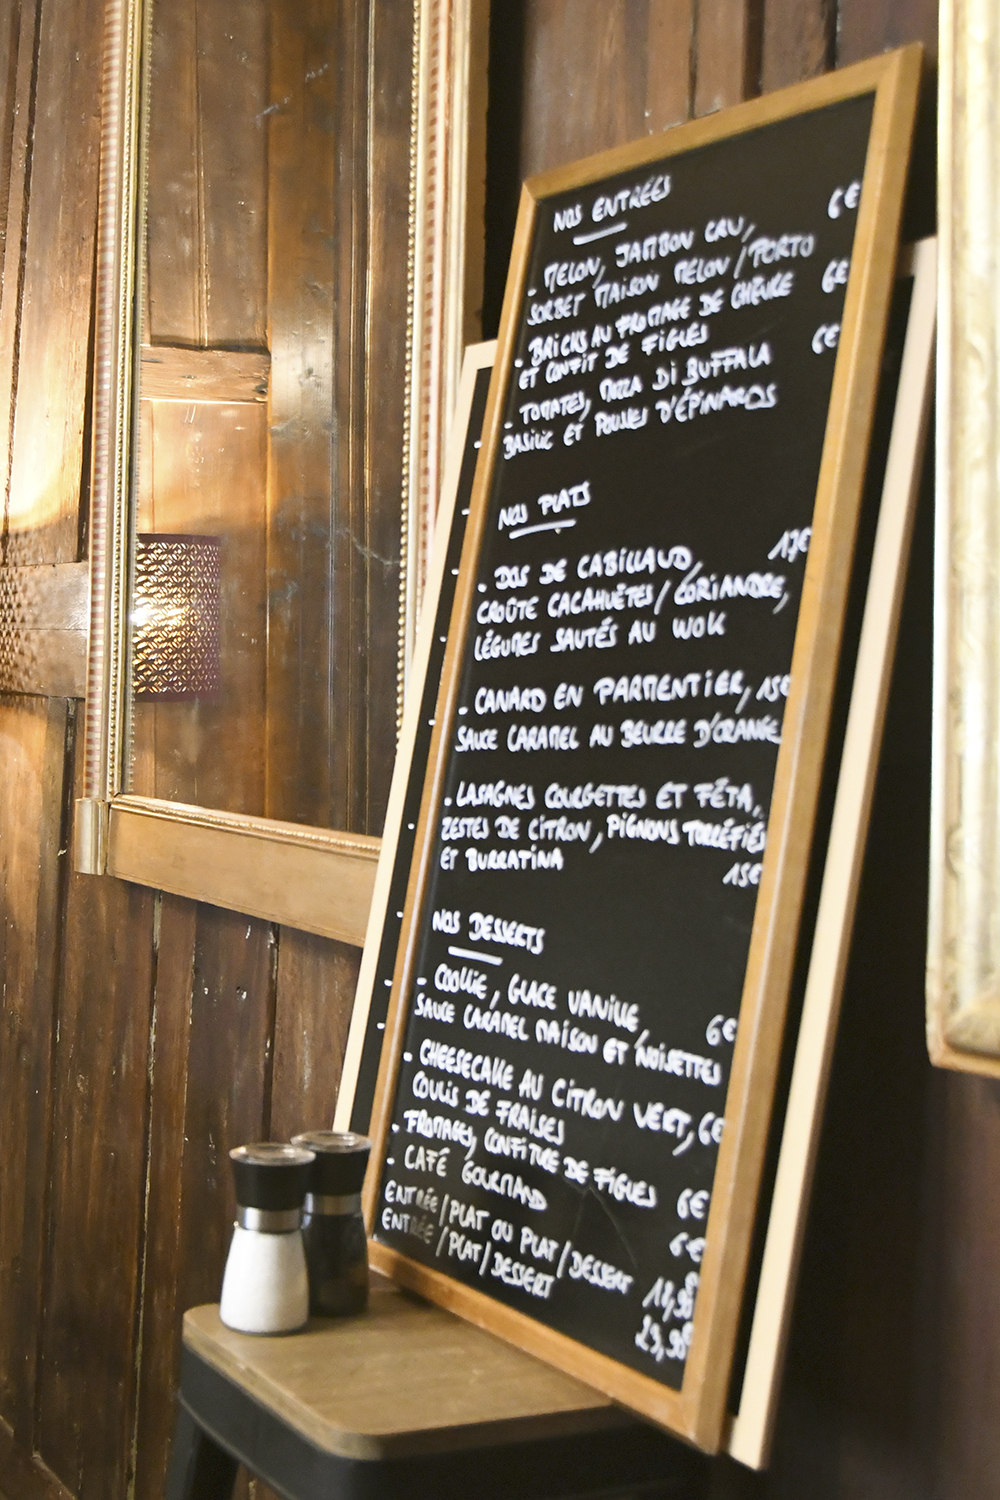 NOS ENTRÉES
- MELON, JAMBON CRU, 6€
SORBET MAISON MELON / PORTO
- BRICKS AU FROMAGE DE CHÈVRE 6€
ET CONFIT DE FIGUES
- TOMATES, MOZZA DI BUFFALA 6€
BASILIC ET POUSSES D'ÉPINARDS
NOS PLATS
- DOS DE CABILLAUD, 17€
CROÛTE CACAHUÈTES / CORIANDRE,
LÉGUMES SAUTÉS AU WOK
- CANARD EN PARMENTIER, 15€
SAUCE CARAMEL AU BEURRE D'ORANGE
- LASAGNES COURGETTES ET FÉTA,
ZESTES DE CITRON, PIGNONS TORRÉFIÉS
ET BURRATINA 15€
NOS DESSERTS
- COOKIE, GLACE VANILLE, 6€
SAUCE CARAMEL MAISON ET NOISETTES
- CHEESECAKE AU CITRON VERT, 6€
COULIS DE FRAISES
- FROMAGES, CONFITURE DE FIGUES 6€
- CAFÉ GOURMAND 6€
ENTRÉE / PLAT OU PLAT / DESSERT 18,90€
ENTRÉE / PLAT / DESSERT 23,90€